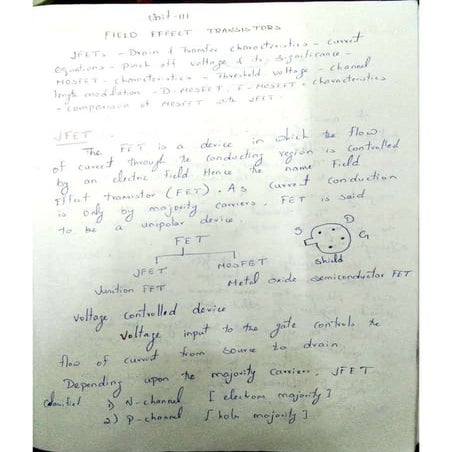 Unit-III
FIELD EFFECT TRANSISTORS
JFETs - Drain & Transfer characteristics - current
equations - Pinch off voltage & its significance -
MOSFET - characteristics - Threshold voltage - channel
length modulation - D-MOSFET, E-MOSFET - characteristics
- comparison of MOSFET with JFET.
JFET
The FET is a device in which the flow
of current through the conducting region is controlled
by an electric field. Hence the name Field
Effect transistor (FET). As current conduction
is only by majority carriers, FET is said
to be a unipolar device.
FET
JFET MOSFET
Junction FET Metal oxide semiconductor FET
S D G
Shield
Voltage controlled device
Voltage input to the gate controls the
flow of current from source to drain.
Depending upon the majority carriers, JFET
1) N-channel [electrons majority]
2) P-channel [hole majority]